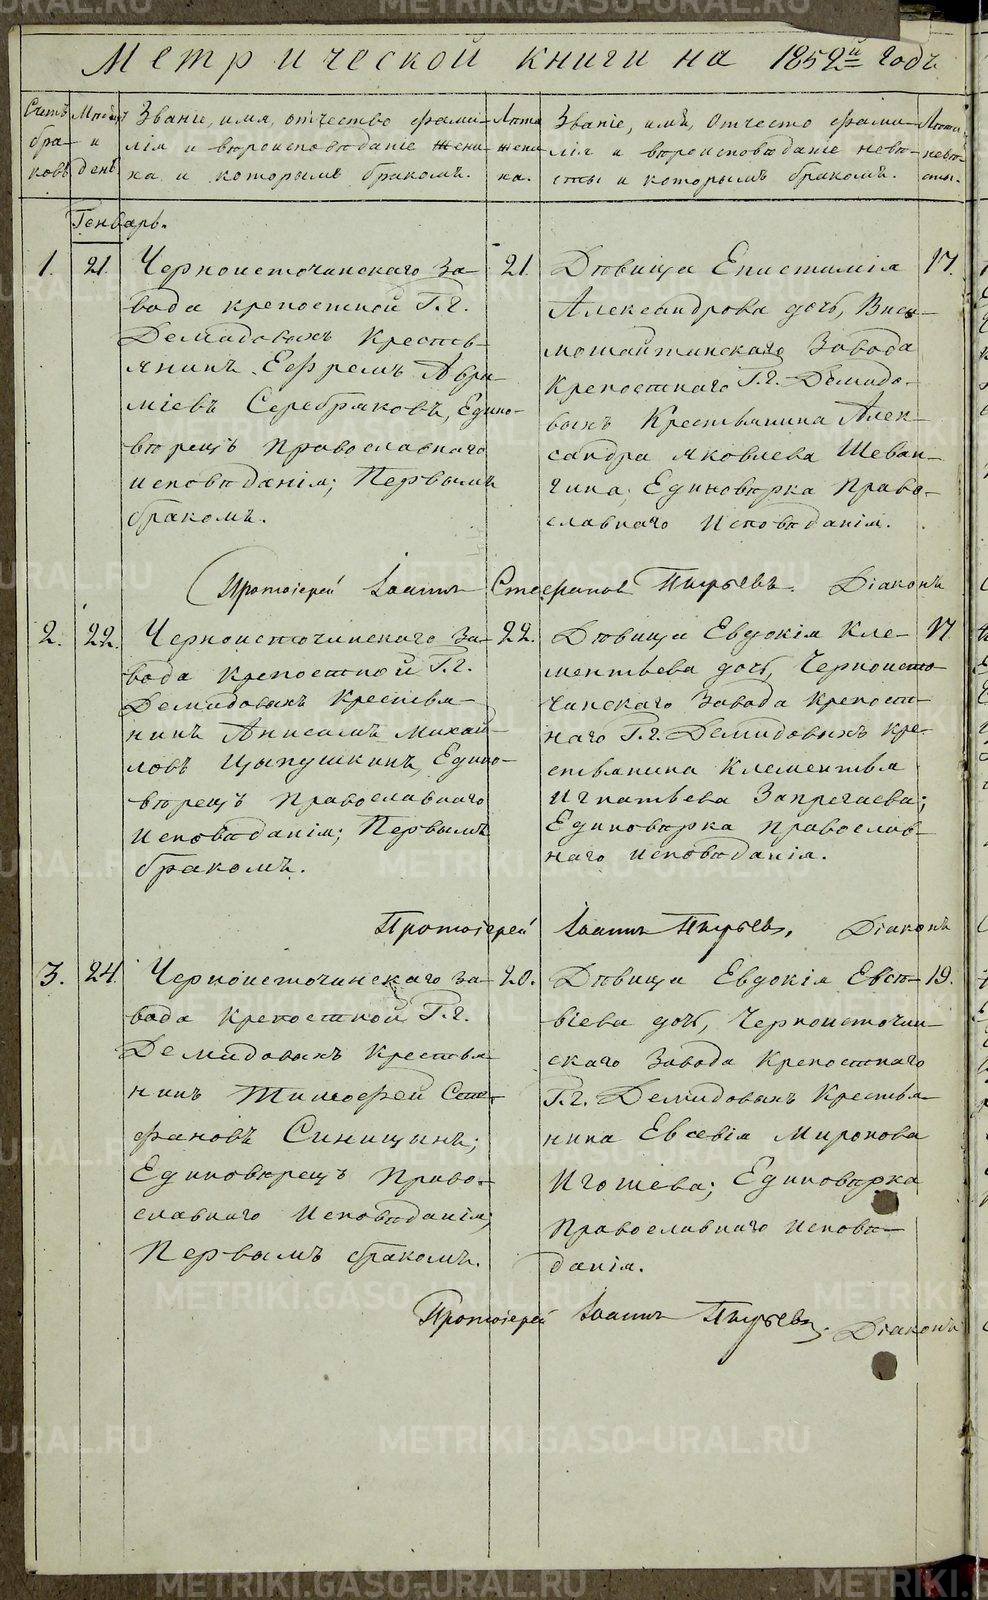 Метрической книги на 1852й годъ
Счетъ браковъ
Месяцъ и день
Званіе, имя, отчество фами-
лія и вѣроисповѣданіе жени-
ха и которымъ бракомъ.
Лѣта жени-
ха.
Званіе, имѣ, Отчесто фами-
лія и вѣроисповѣданіе невѣ-
сты и которымъ бракомъ.
Лѣта невѣ-
сты.
Генварь.
1.
21.
Черноисточинскаго за-
вода крепостной Г.г.
Демидовыхъ Кресть-
янинъ Ефремъ Авра-
міевъ Серебряковъ, Едино-
вѣрецъ Православнаго
исповѣданія; Первымъ
бракомъ.
21.
Дѣвица Епистимія
Александрова дочь, Виси-
мошайтанскаго Завода
Крепостнаго Г.г. Демидо-
выхъ Крестьянина Алек-
сандра Яковлева Шеван-
гина; Единовѣрка Право-
славнаго Исповѣданія.
17.
Протоіерей Іоаннъ Стефановъ Пырьевъ. Діаконъ
2.
22.
Черноисточинскаго За-
вода Крепостной Г.г.
Демидовыхъ Крестья-
нинъ Анисимъ Михай-
ловъ Цыпушкинъ, Едино-
вѣрецъ Православнаго
Исповѣданія; Первымъ
бракомъ.
22.
Дѣвица Евдокія Кле-
ментьева дочь, Черноисто-
чинскаго Завода Крепост-
наго Г.г. Демидовыхъ Кре-
стьянина Клементья
Игнатьева Запрегаева;
Единовѣрка Православ-
наго исповѣданія.
17.
Протоіерей Іоаннъ Пырьевъ. Діаконъ
3.
24.
Черноисточинскаго за-
вода Крепостной Г.г.
Демидовыхъ Крестья-
нинъ Тимофей Сте-
фановъ Синицынъ;
Единовѣрецъ Право-
славнаго Исповѣданія;
Первымъ бракомъ.
20.
Дѣвица Евдокія Евсе-
віева дочь, Черноисточин-
скаго Завода Крепостнаго
Г.г. Демидовыхъ Крестья-
нина Евсевія Миронова
Игошева; Единовѣрка
Православнаго исповѣ-
данія.
19.
Протоіерей Іоаннъ Пырьевъ. Діаконъ
METRIKI.GASO-URAL.RU